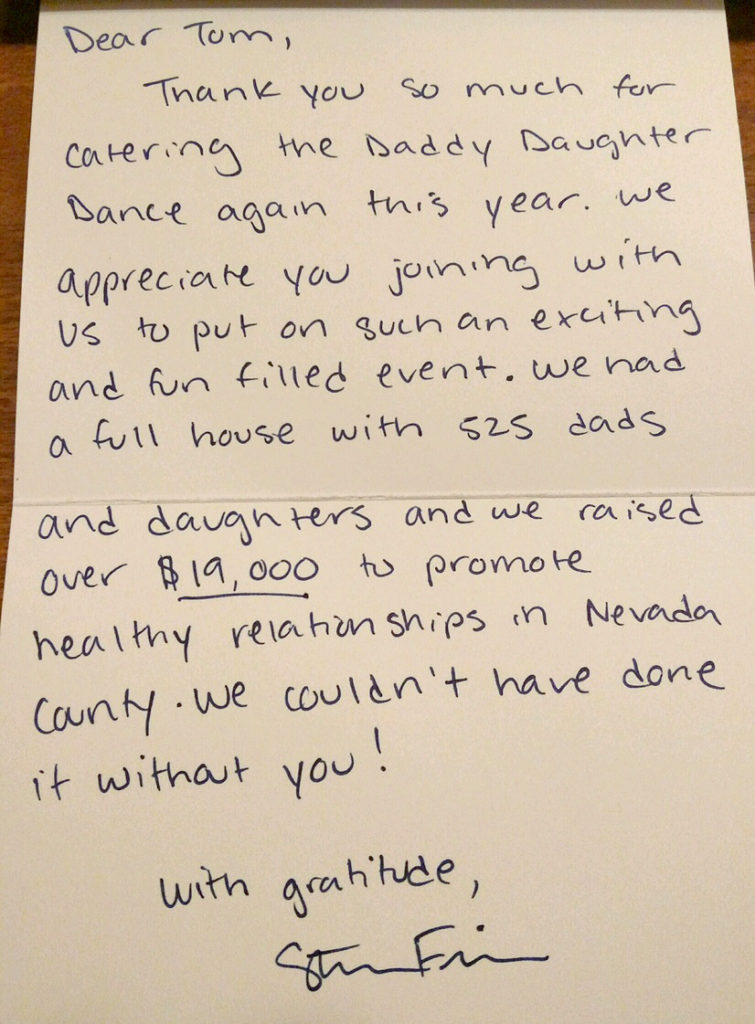 Dear Tom,
Thank you so much for
catering the Daddy Daughter
Dance again this year. We
appreciate you joining with
us to put on such an exciting
and fun filled event. We had
a full house with 525 dads
and daughters and we raised
over $19,000 to promote
healthy relationships in Nevada
County. We couldn't have done
it without you!
with gratitude,